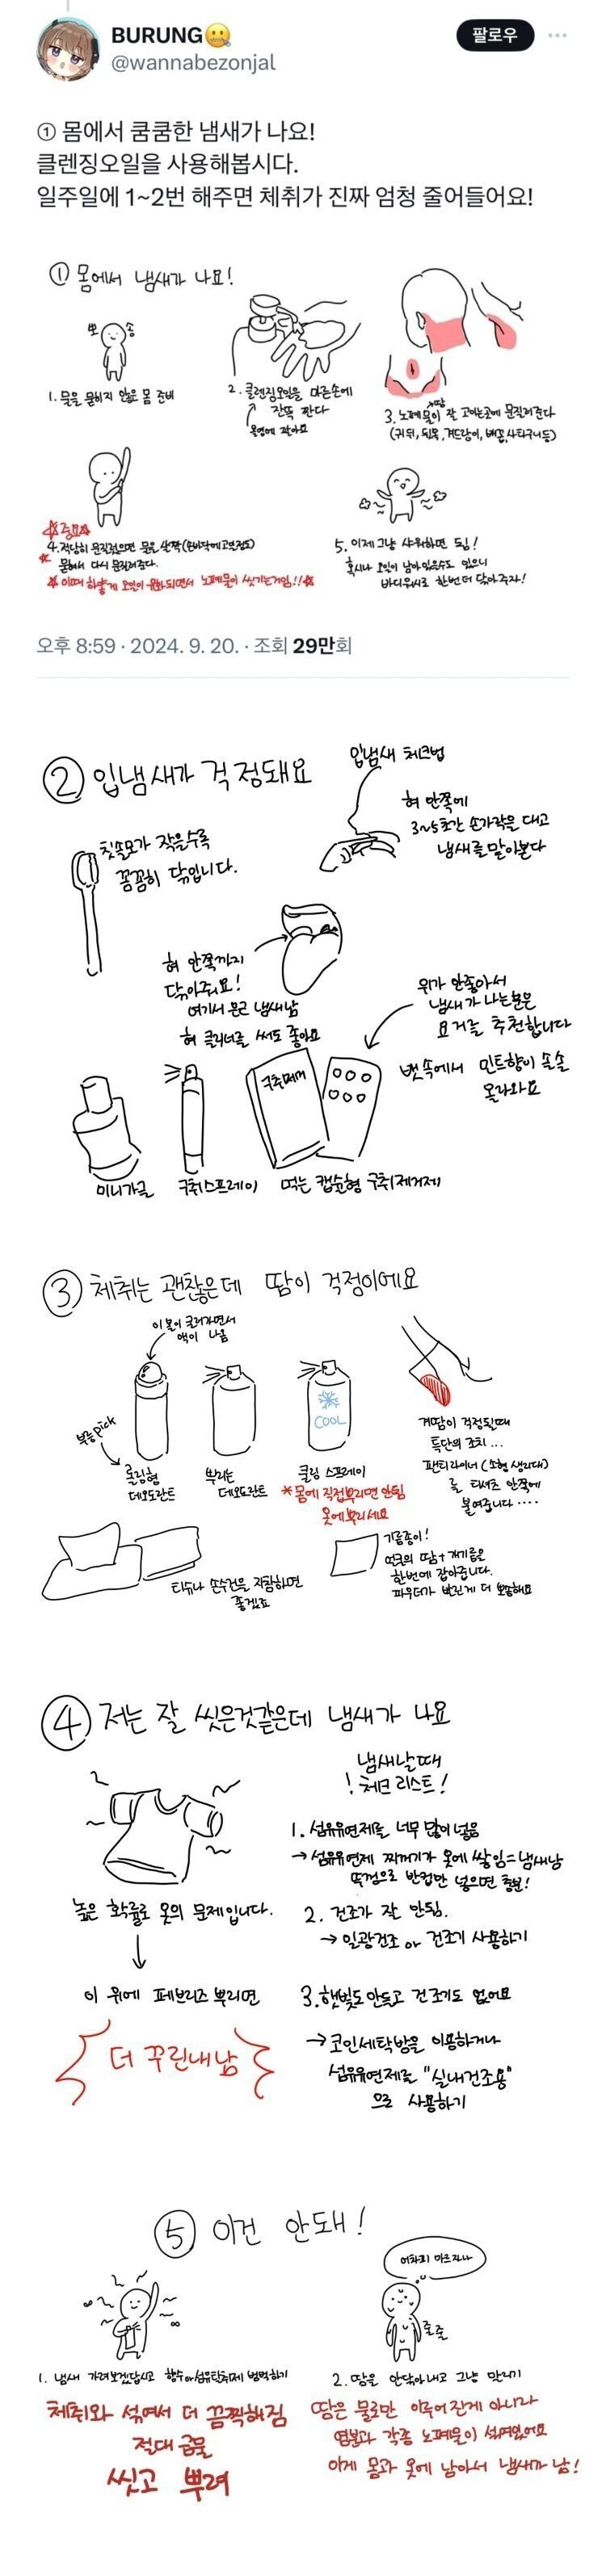 BURUNG
@wannabezonjal
팔로우
① 몸에서 쿰쿰한 냄새가 나요!
클렌징오일을 사용해봅시다.
일주일에 1~2번 해주면 체취가 진짜 엄청 줄어들어요!
① 몸에서 냄새가 나요!
뽀 송
1. 물을 묻히지 않은 몸 준비
2. 클렌징오일을 마른손에
잔뜩 짠다
올영에 많아요
땀
3. 노폐물이 잘 고이는곳에 문질러준다
(귀 뒤, 뒷목, 겨드랑이, 배꼽, 사타구니 등)
☆중요☆
4. 적당히 문질렀으면 물을 살짝 (손바닥에 고일정도)
묻혀서 다시 문질러준다.
☆ 이때 하얗게 오일이 유화되면서 노폐물이 씻기는거임!!☆
5. 이제 그냥 샤워하면 됨!
혹시나 오일이 남아있을수도 있으니
바디워시로 한번 더 닦아주자!
오후 8:59 · 2024. 9. 20. · 조회 29만회
② 입냄새가 걱정돼요
입냄새 체크법
혀 안쪽에
3~5초간 손가락을 대고
냄새를 맡아본다
칫솔모가 작을수록
꼼꼼히 닦입니다.
혀 안쪽까지
닦아주세요!
여기서 은근 냄새남
혀 클리너를 써도 좋아요
위가 안좋아서
냄새가 나는분은
요거를 추천합니다
뱃속에서 민트향이 솔솔
올라와요
구취제거
미니가글
구취스프레이
먹는 캡슐형 구취제거제
③ 체취는 괜찮은데 땀이 걱정이에요
이 볼이 굴러가면서
액이 나옴
부릉pick
롤링형
데오도란트
뿌리는
데오도란트
COOL
쿨링 스프레이
*몸에 직접뿌리면 안됨
옷에뿌리세요
겨땀이 걱정될때
특단의 조치...
팬티라이너 (소형 생리대)
를 티셔츠 안쪽에
붙여줍니다....
티슈나 손수건을 지참하면
좋겠죠
기름종이!
얼굴의 땀+개기름을
한번에 잡아줍니다.
파우더가 발린게 더 뽀송해요
④ 저는 잘 씻은것같은데 냄새가 나요
냄새날때
! 체크 리스트!
높은 확률로 옷의 문제입니다.
이 위에 페브리즈 뿌리면
더 꾸린내남
1. 섬유유연제를 너무 많이 넣음
→ 섬유유연제 찌꺼기가 옷에 쌓임=냄새남
뚜껑으로 반컵만 넣으면 충분!
2. 건조가 잘 안됨.
→ 일광건조 or 건조기 사용하기
3. 햇빛도 안들고 건조기도 없어요
→ 코인세탁방을 이용하거나
섬유유연제를 "실내건조용"
으로 사용하기
⑤ 이건 안돼!
1. 냄새 가려보겠답시고 향수or섬유탈취제 범벅하기
체취와 섞여서 더 끔찍해짐
절대 금물
씻고 뿌려
어차피 마르자나
줄줄
2. 땀을 안닦아내고 그냥 말리기
땀은 물로만 이루어진게 아니라
염분과 각종 노폐물이 섞여있어요
이게 몸과 옷에 남아서 냄새가 남!